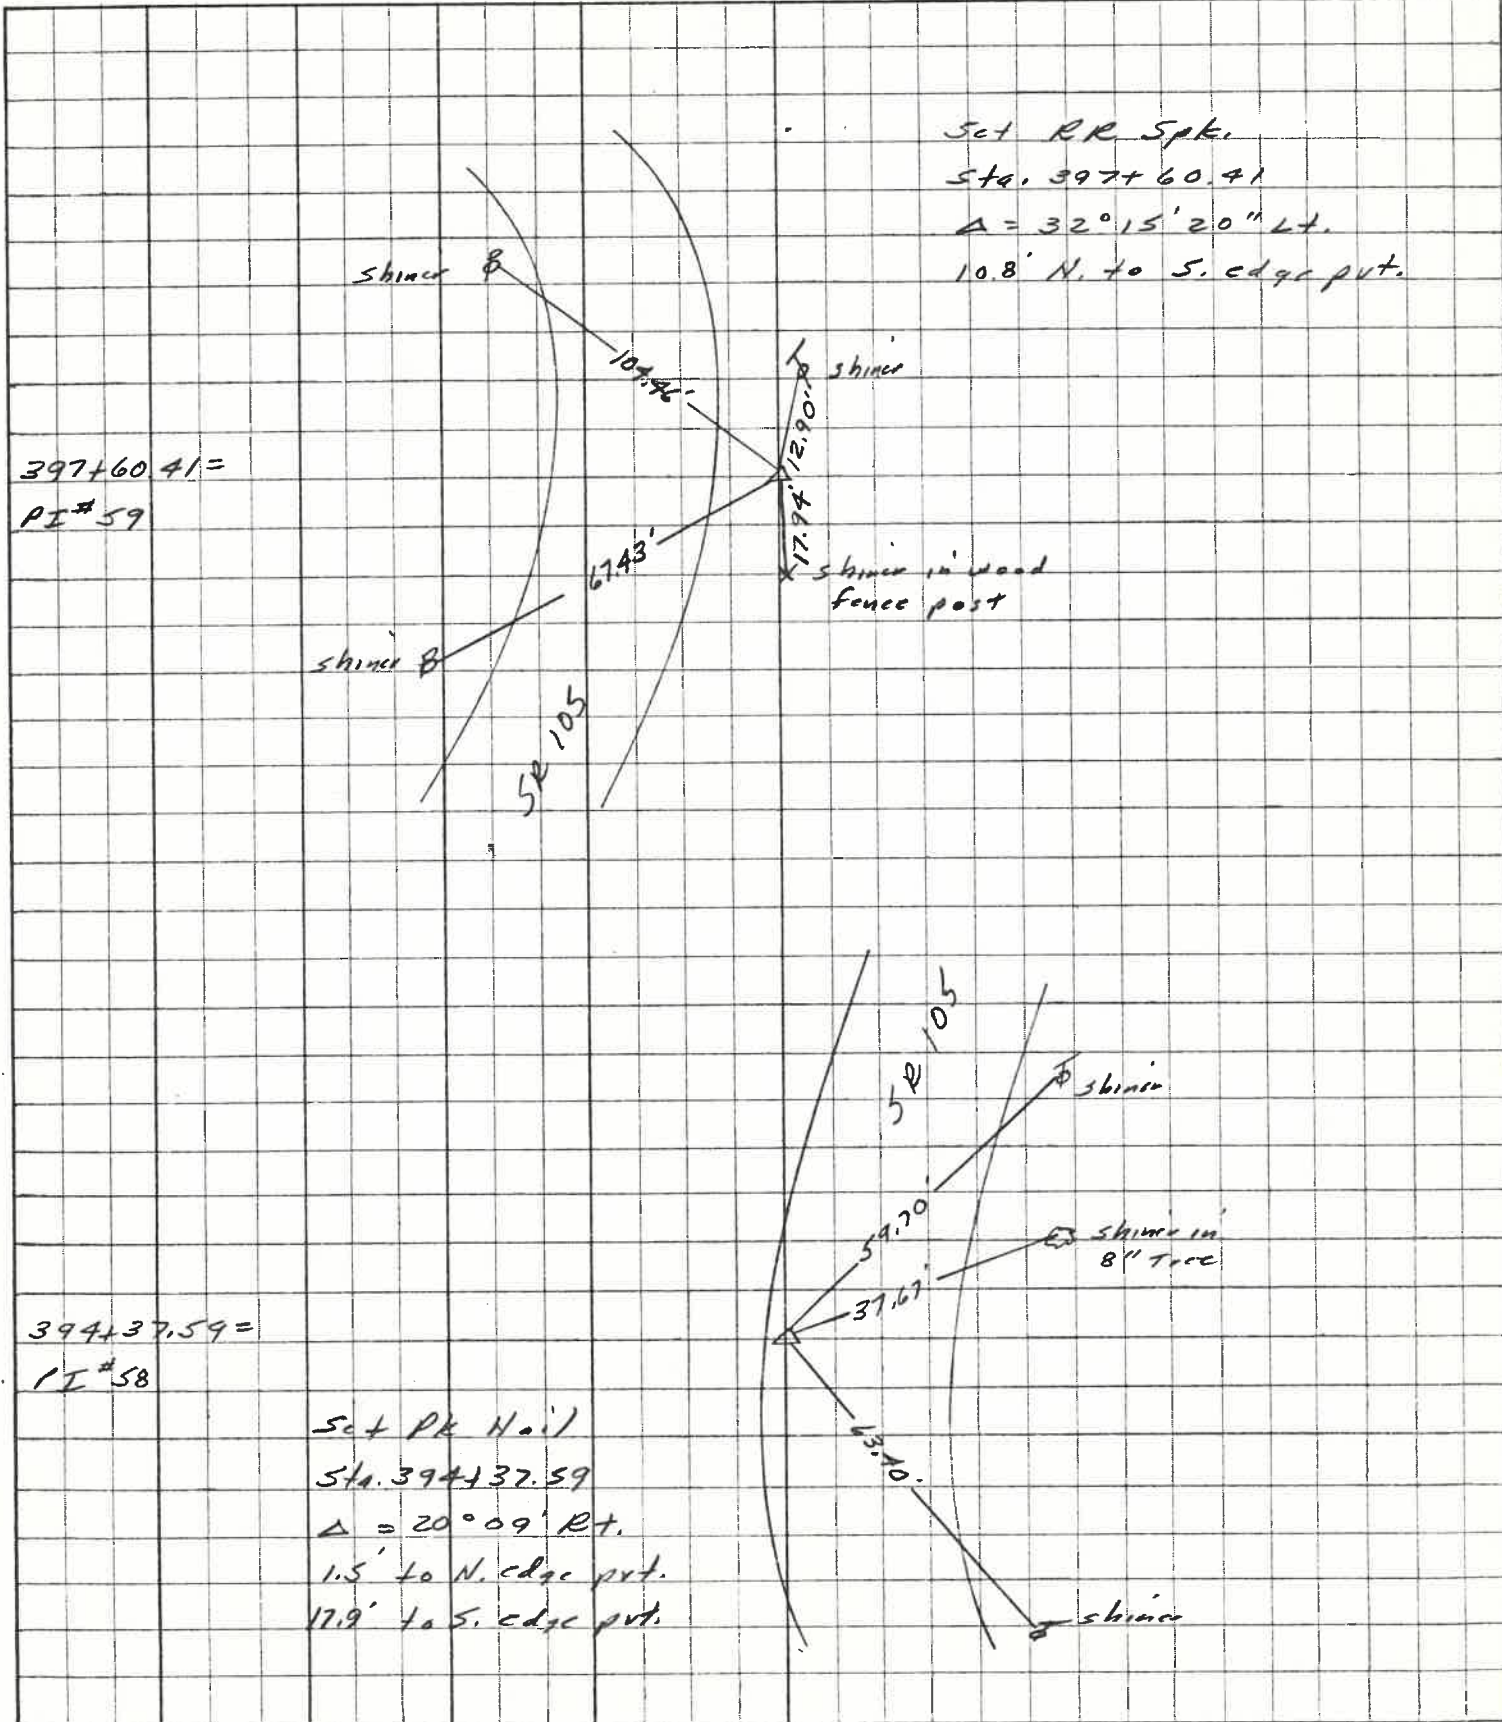 Set RR Spk.
Sta. 397+60.41
Δ = 32°15'20" Lt.
10.8' N. to S. edge pvt.
shiner
shiner
12.90'
397+60.41=
PI #59
17.94'
67.43'
shiner in wood
fence post
shiner
SR 105
SR 105
shiner
59.70'
shiner in
8" Tree
37.67'
394+37.59=
PI #58
Set PK Nail
63.40'
Sta. 394+37.59
Δ = 20°09' Rt.
1.5' to N. edge pvt.
17.9' to S. edge pvt.
shiner